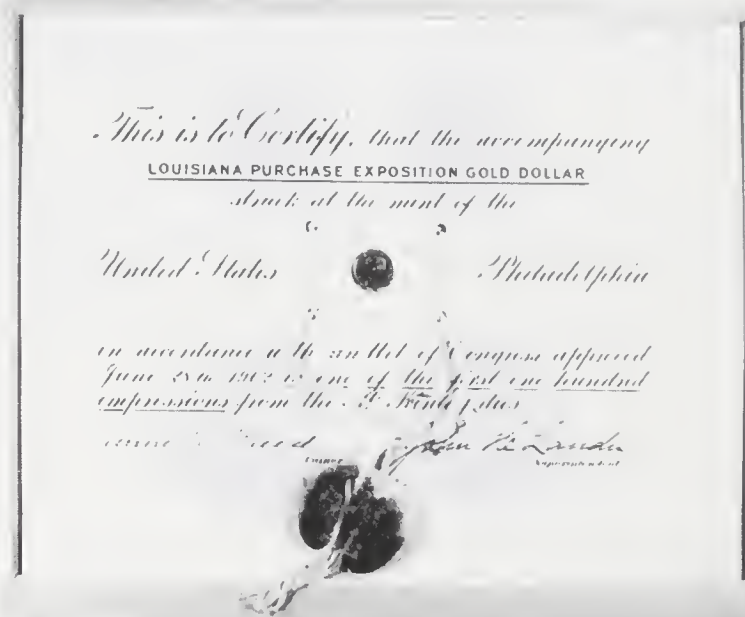 This is to Certify, that the accompanying
LOUISIANA PURCHASE EXPOSITION GOLD DOLLAR
struck at the mint of the
United States
Philadelphia
in accordance with an Act of Congress approved
June 28th 1902 is one of the first one hundred
impressions from the
John
Superintendent